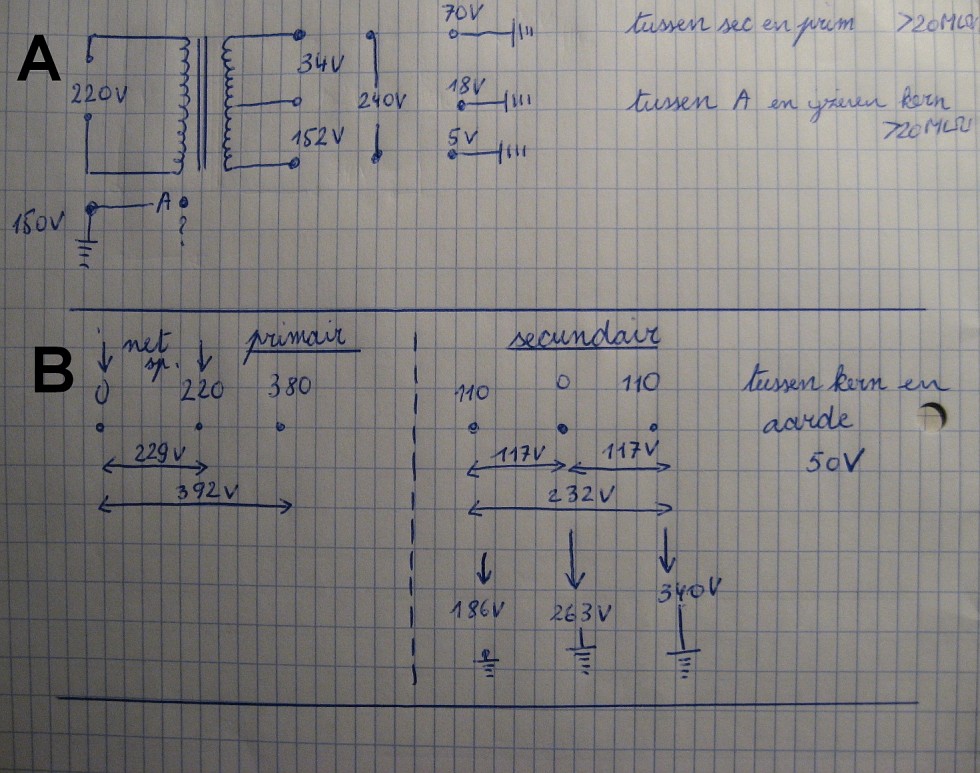 A
220V
34V
152V
240V
70V
18V
5V
tussen sec en prim >20MΩ
tussen A en yzeren kern
>20MΩ
150V
A
?
B
net
sp.
primair
0 220 380
229V
392V
secundair
110 0 110
117V 117V
232V
186V 263V 340V
tussen kern en
aarde
50V